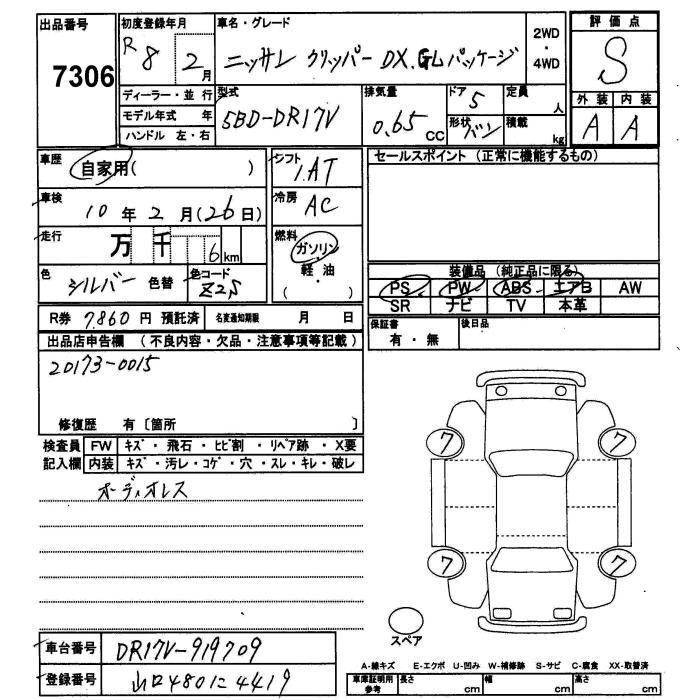 出品番号 7306
初度登録年月 R8 2月
車名・グレード
ニッサン クリッパー DX.GLパッケージ
2WD
・
4WD
評価点
S
外装 内装
A A
ディーラー・並行
モデル年式 年
ハンドル 左・右
型式
5BD-DR17V
排気量
0.65 CC
ドア 5
形状 バン
定員 人
積載 kg
車歴
自家用( )
シフト
1.AT
セールスポイント(正常に機能するもの)
車検
10年2月(26日)
冷房
AC
走行
万 千 6 km
燃料
ガソリン
・
軽・油
( )
色
シルバー 色替
色コード
Z2S
装備品(純正品に限る)
PS PW ABS エアB AW
SR ナビ TV 本革
R券 7.860円 預託済 名変通知期限 月 日
保証書
有・無
後日品
出品店申告欄(不良内容・欠品・注意事項等記載)
20173-0015
修復歴 有〔箇所 〕
検査員 FW キズ・飛石・ヒビ割・リペア跡・X要
記入欄 内装 キズ・汚レ・コゲ・穴・スレ・キレ・破レ
オーディオレス
7 7
7 7
スペア
車台番号 DR17V-919709
登録番号 山口480に4419
A-線キズ E-エクボ U-凹み W-補修跡 S-サビ C-腐食 XX-取替済
車庫証明用参考 長さ cm 幅 cm 高さ cm